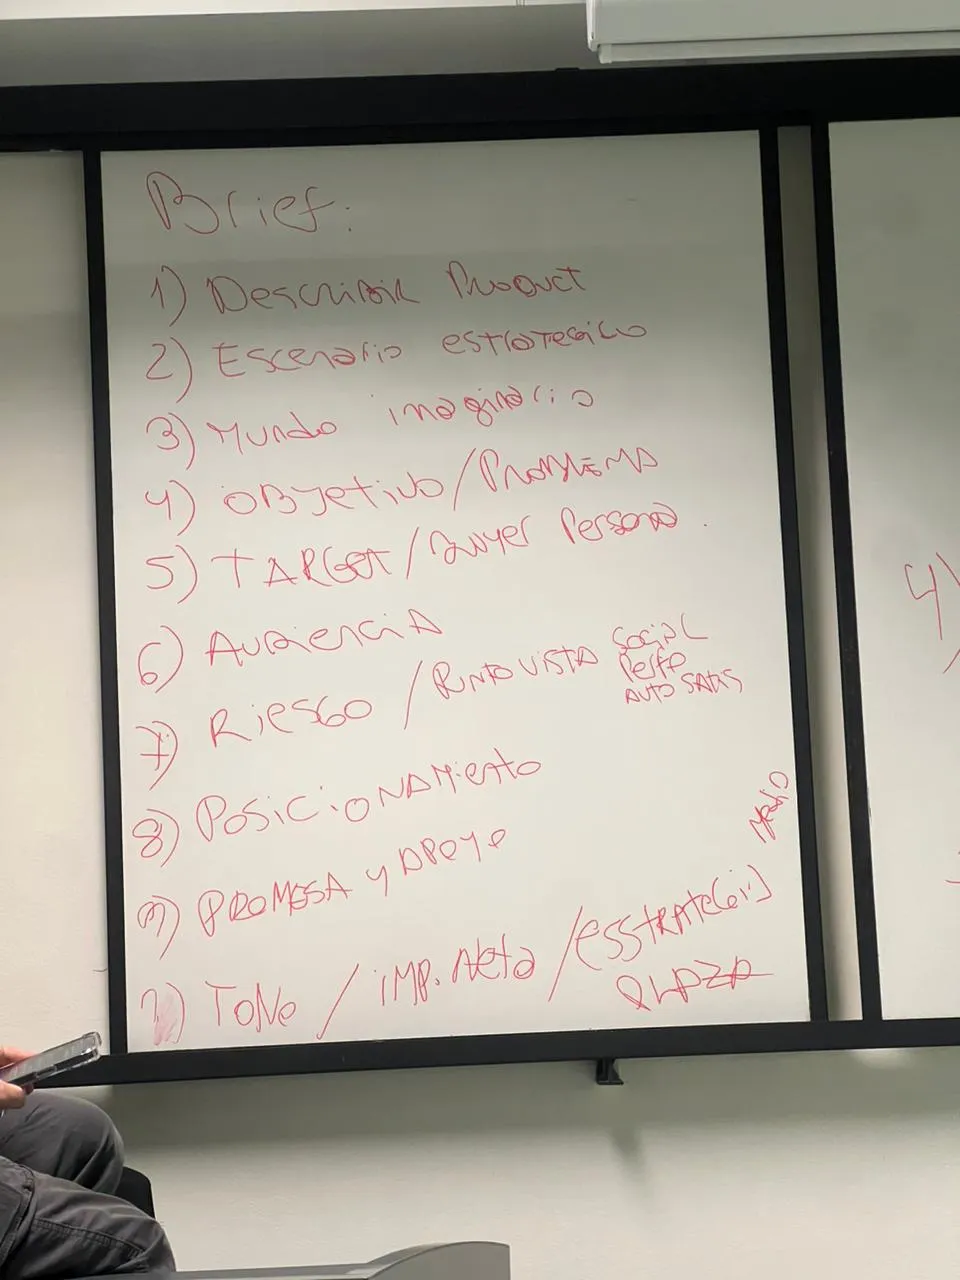 Brief:
1) Describir Product
2) Escenario estrategico
3) Mundo imaginario
4) Objetivo/Problema
5) TARGET/Buyer Persona.
6) Audiencia
7) Riesgo / Punto vista social
Perfo
AUTO SATIS
8) Posicionamiento
9) PROMESA y APOYO
Medio
) Tono / imp. Neto /
PLAZA
4)